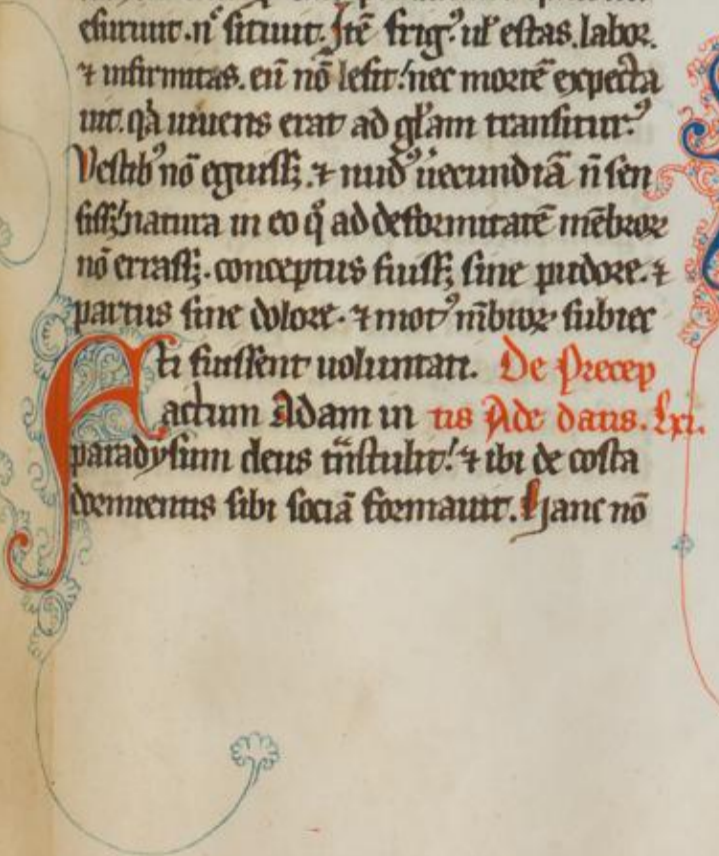 esuriuit. n̄ sitiuit. Itē frigꝰ ul̓ estas. labor.
⁊ infirmitas. eū nō lesit. nec mortē expecta
uit. q̇a uiuens erat ad gl̓am transiturꝰ.
Vestibꝰ nō eguissꝫ. ⁊ nudꝰ uerecundiā n̄ sen
sissꝫ. natura in eo q̊ ad deformitatē mēbroꝝ
nō errassꝫ. conceptus fuissꝫ sine pudore. ⁊
partus sine dolore. ⁊ motꝰ mēbroꝝ subiec
ti fuissent uoluntati. De Precep
Factum Adam in tis Ade datis. Lxi.
paradysum deus tn̄stulit. ⁊ ibi de costa
dormientis sibi sociā formauit. Hanc nō